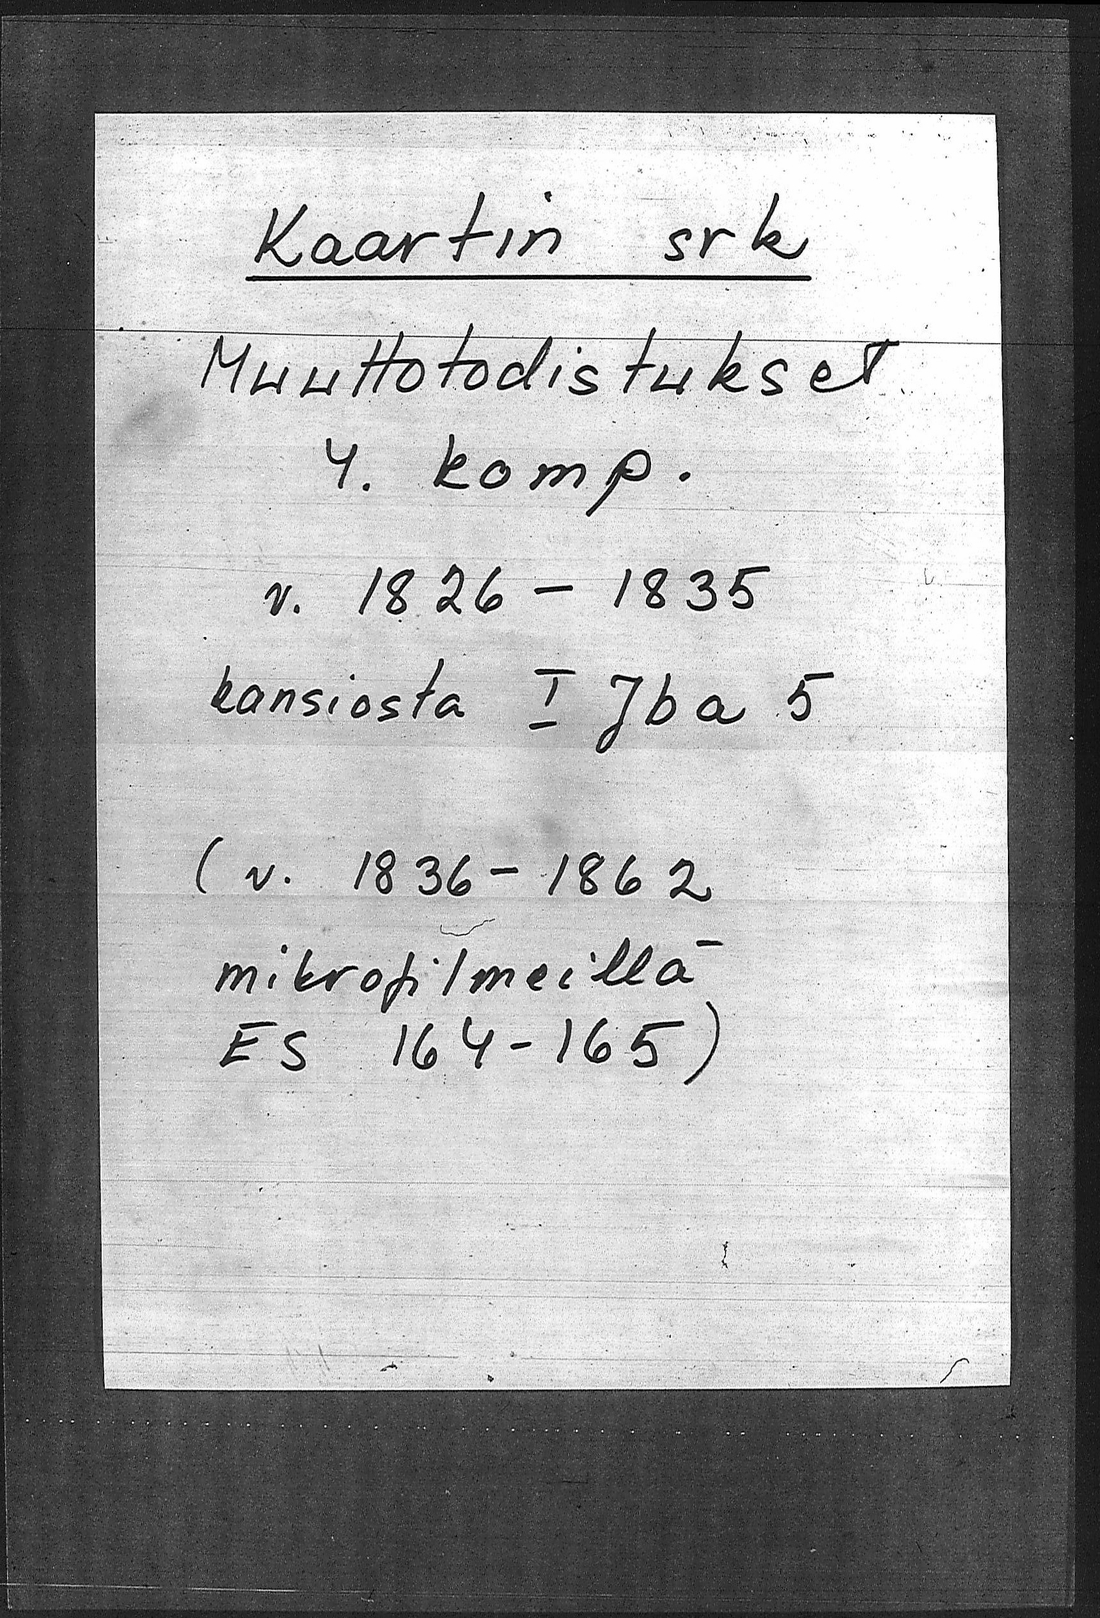 Kaartin srk
Muuttotodistukset
4. komp.
v. 1826 - 1835
kansiosta I Jba 5
( v. 1836 - 1862
mikrofilmeillä
ES 164-165)